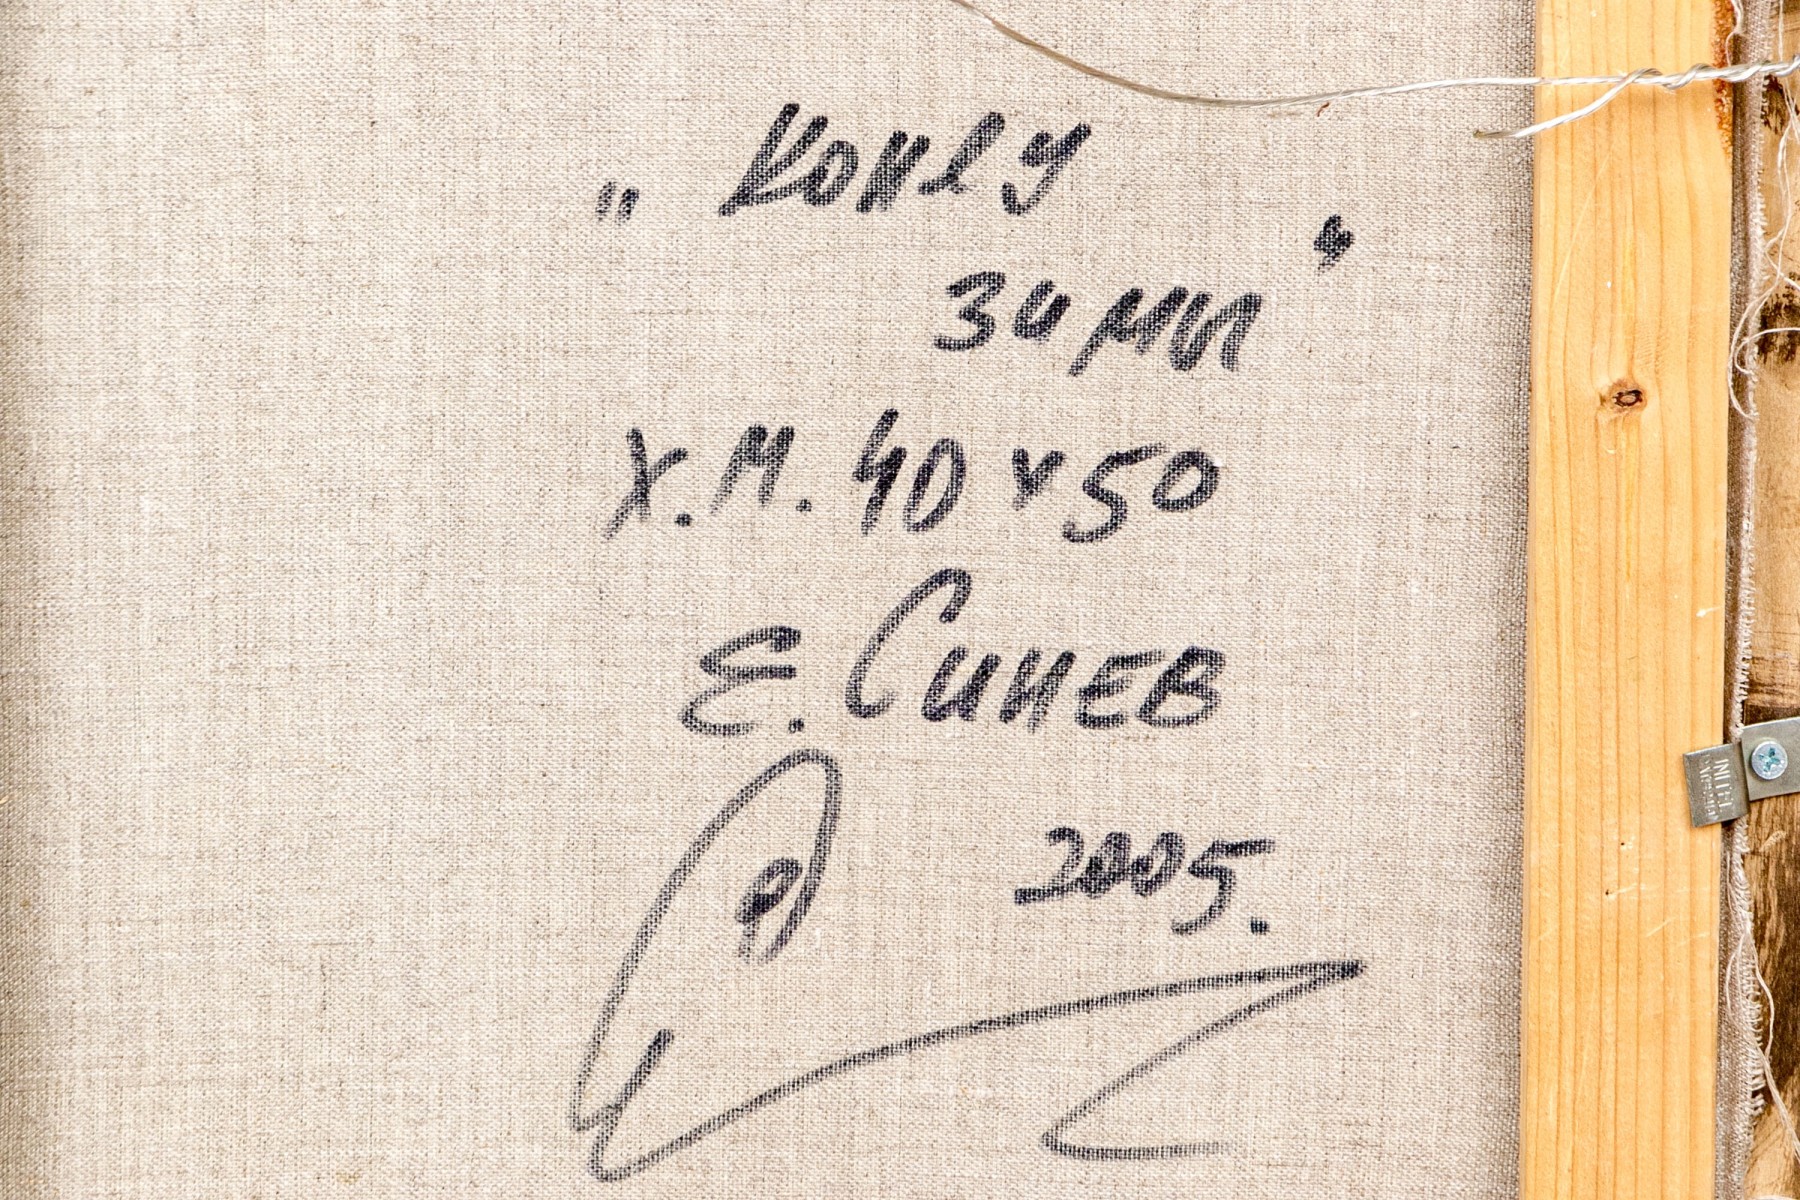 " Конец
зимы "
Х.М. 40 х 50
Е. Синев
2005.